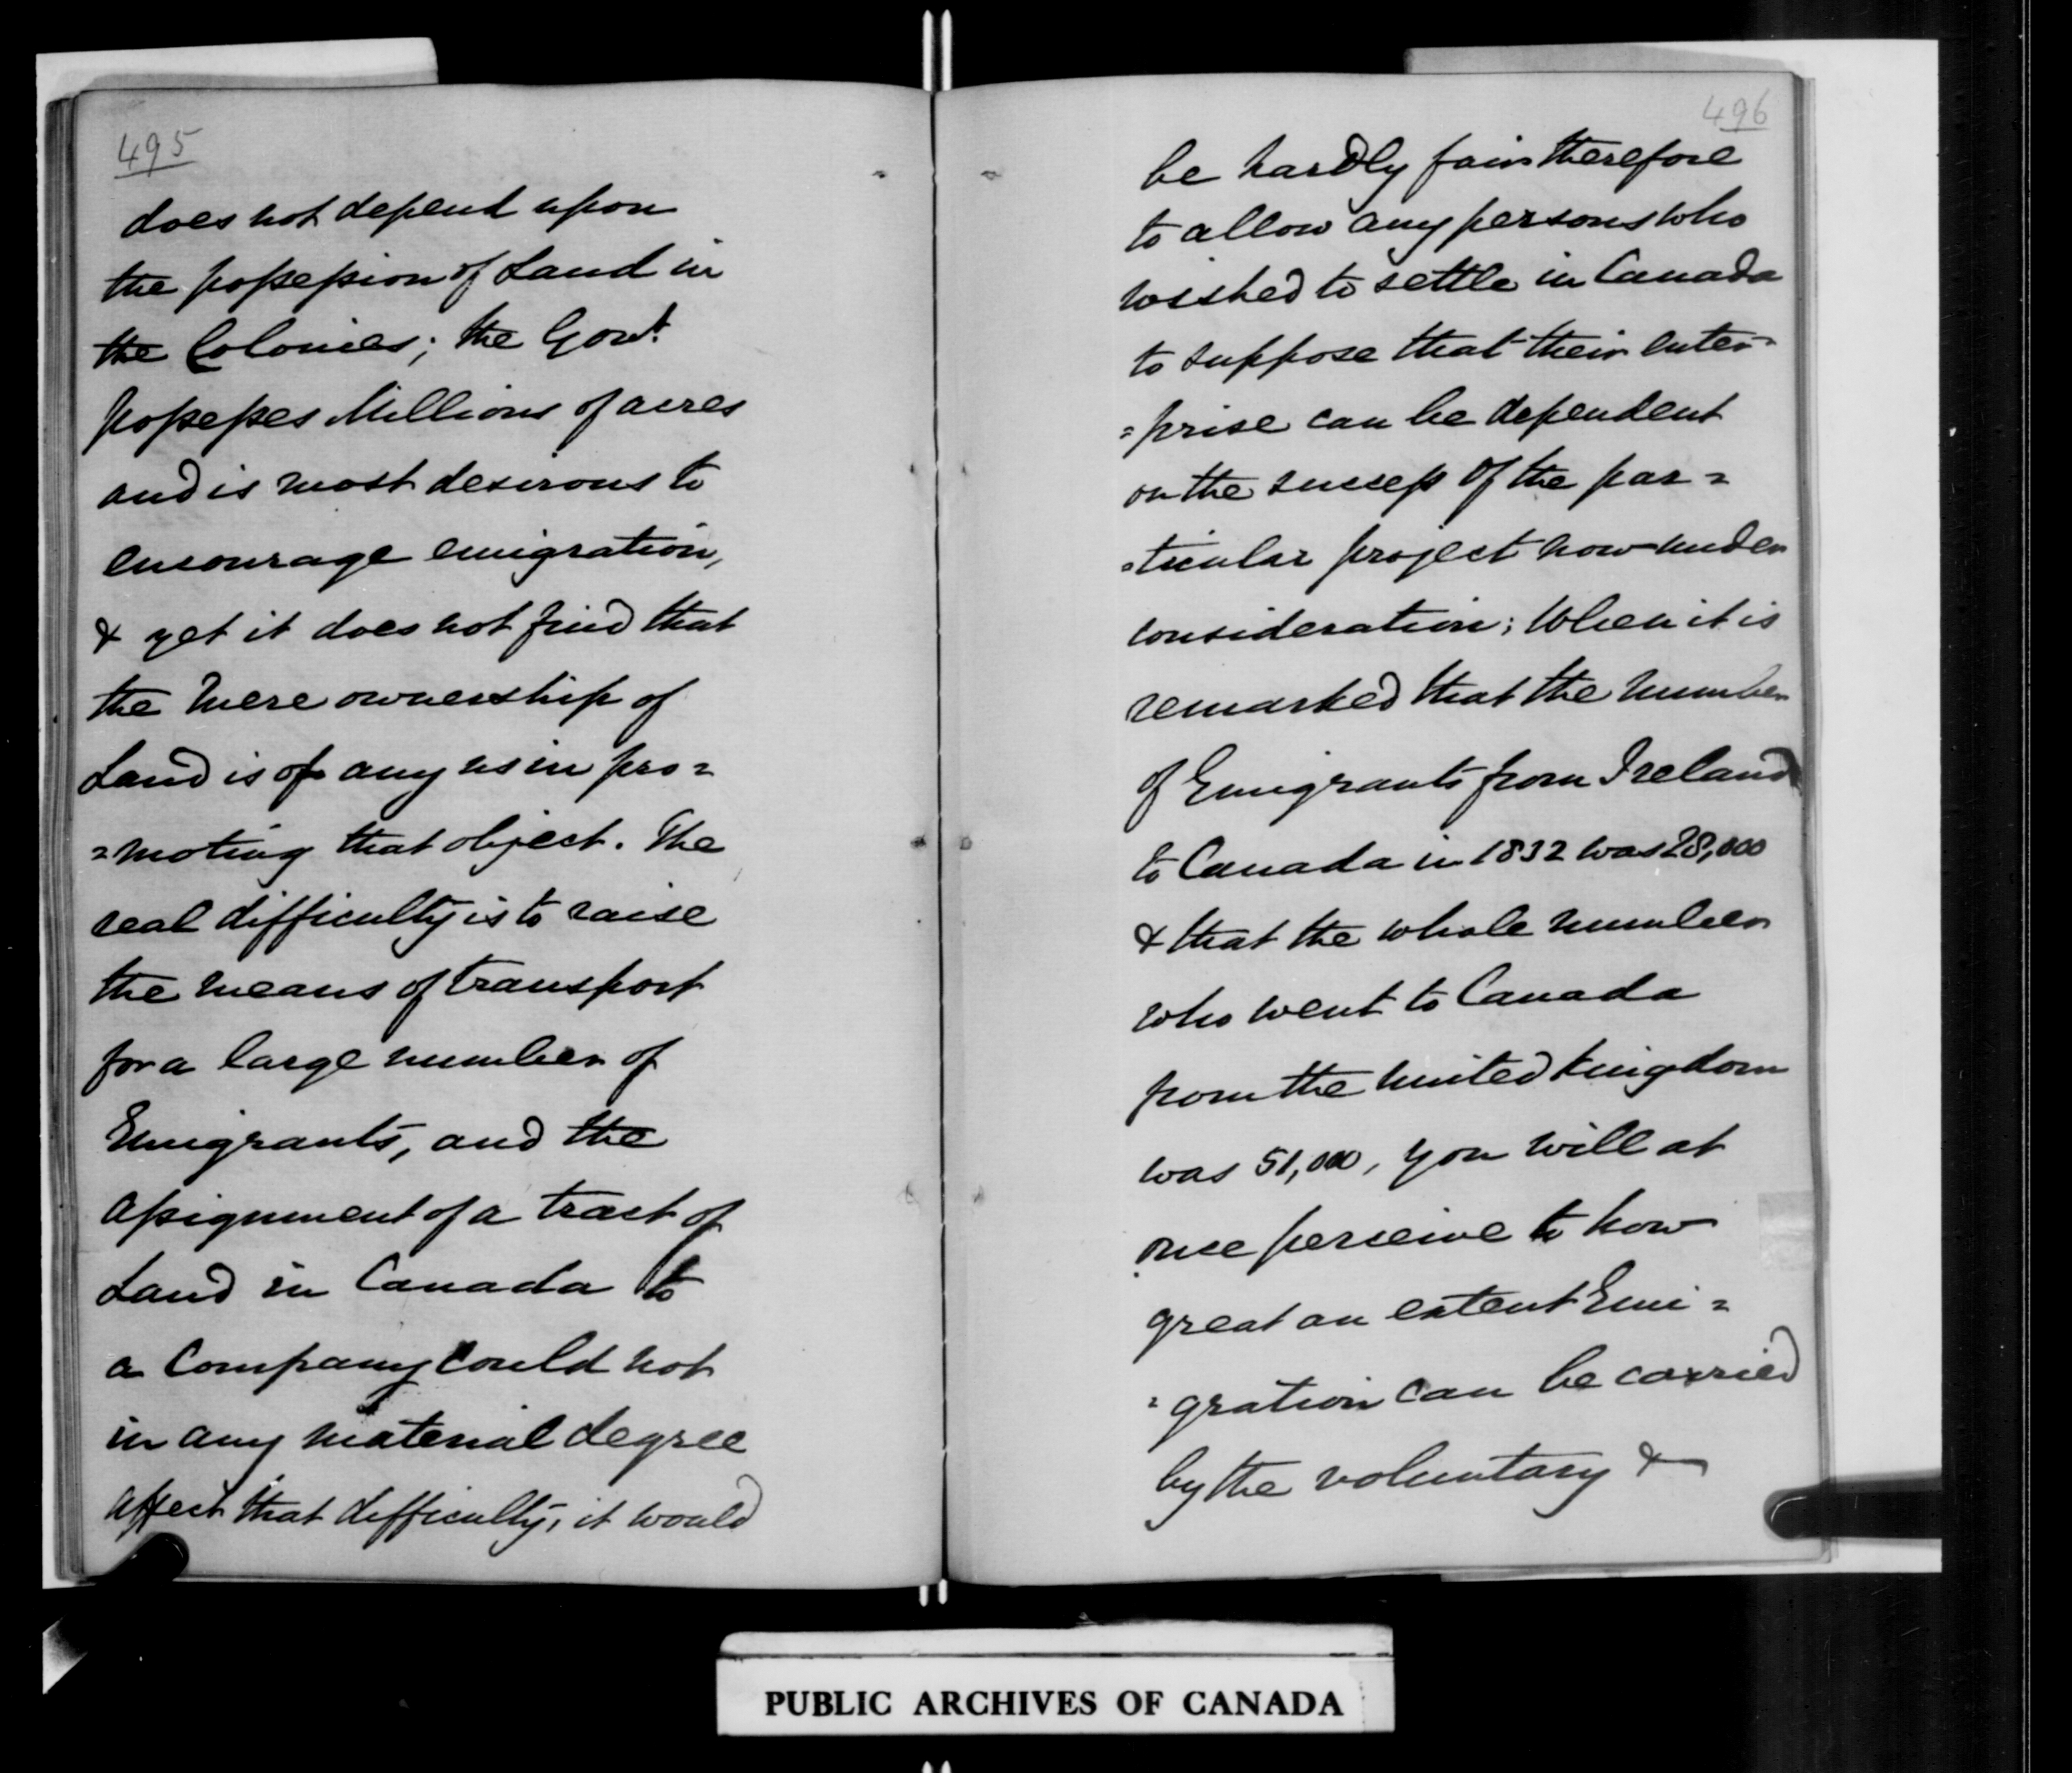 495
does not depend upon
the possession of Land in
the Colonies; the Govt.
possesses Millions of acres
and is most desirous to
encourage emigration,
& yet it does not find that
the mere ownership of
Land is of any us in pro=
=moting that object. The
real difficulty is to raise
the means of transport
for a large number of
Emigrants, and the
assignment of a tract of
Land in Canada to
a Company could not
in any material degree
affect that difficulty; it would
496
be hardly fair therefore
to allow any persons who
wished to settle in Canada
to suppose that their enter=
=prise can be dependent
on the success of the par=
=ticular project now under
consideration; When it is
remarked that the number
of Emigrants from Ireland
to Canada in 1832 was 28,000
& that the whole number
who went to Canada
from the United Kingdom
was 51,000, you will at
once perceive to how
great an extent Emi=
=gration can be carried
by the voluntary &
PUBLIC ARCHIVES OF CANADA